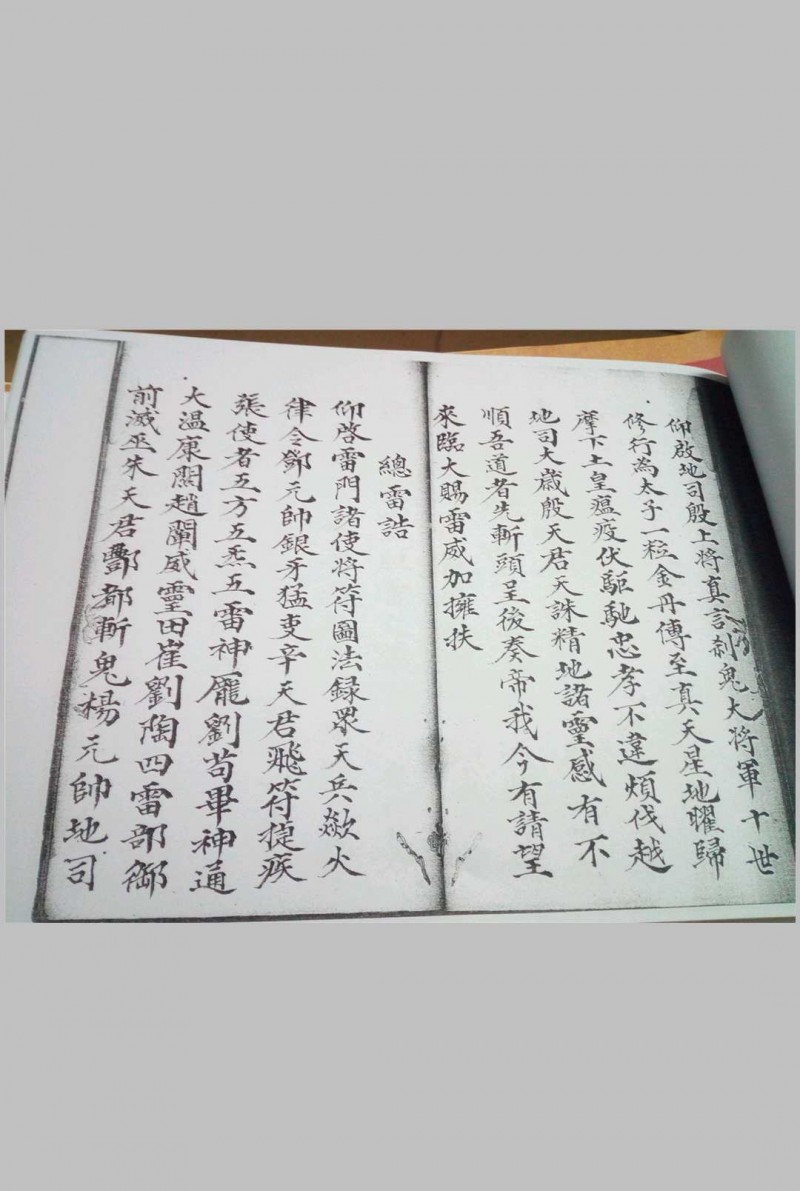 仰啟地司殷上将真言剎鬼大将軍十世
修行為太子一粒金丹傳至真天星地曜歸
摩下土皇瘟疫伏驅馳忠孝不違煩伐越
地司大歲殷天君天誅精地諸靈感有不
順吾道者先斬頭呈後奏帝我今有請望
來臨大賜雷威加擁扶
總雷誥
仰啓雷門諸使將符圖法録眾天兵欻火
律令鄧元帥銀牙猛吏辛天君飛符捉疾
張使者五方五炁五雷神龐劉苟畢神通
大溫康関趙闡威靈田崔劉陶四雷部御
前滅巫朱天君酆都斬鬼楊元帥地司